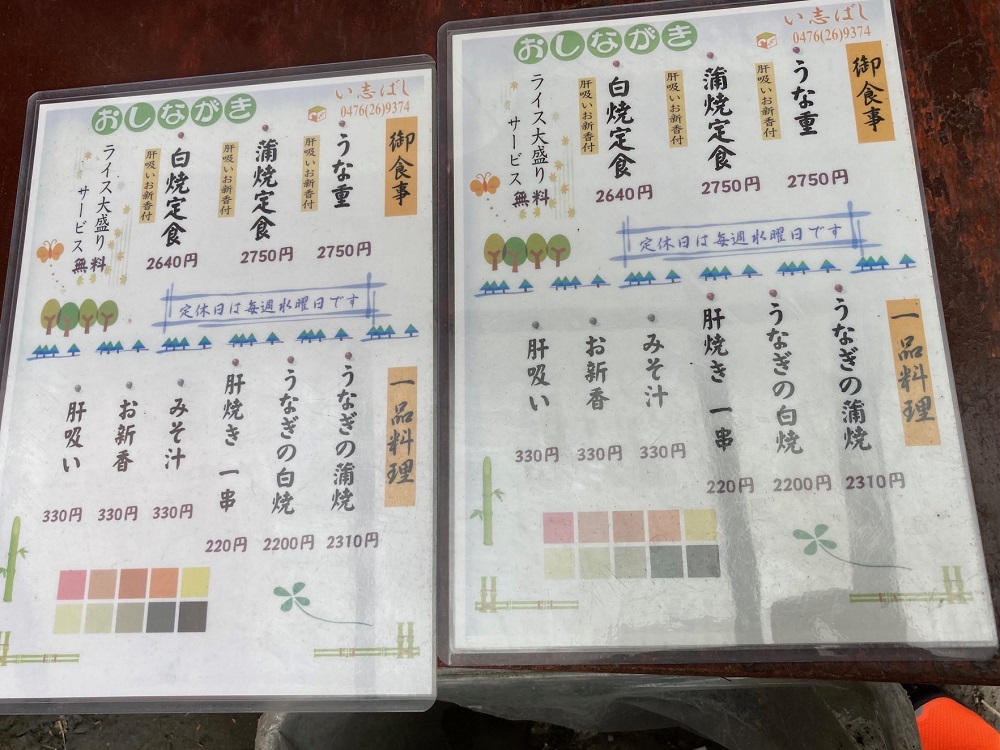 おしながき
い志ばし
0476(26)9374
御食事
うな重
肝吸いお新香付
2750円
蒲焼定食
肝吸いお新香付
2750円
白焼定食
肝吸いお新香付
2640円
ライス大盛り
サービス無料
定休日は毎週水曜日です
一品料理
うなぎの蒲焼
2310円
うなぎの白焼
2200円
肝焼き 一串
220円
みそ汁
330円
お新香
330円
肝吸い
330円
おしながき
い志ばし
0476(26)9374
御食事
うな重
肝吸いお新香付
2750円
蒲焼定食
肝吸いお新香付
2750円
白焼定食
肝吸いお新香付
2640円
ライス大盛り
サービス無料
定休日は毎週水曜日です
一品料理
うなぎの蒲焼
2310円
うなぎの白焼
2200円
肝焼き 一串
220円
みそ汁
330円
お新香
330円
肝吸い
330円